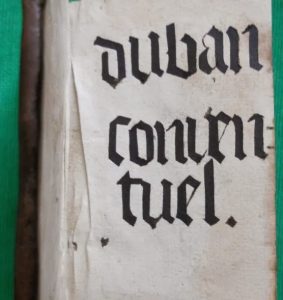 duban
conuen-
tuel.